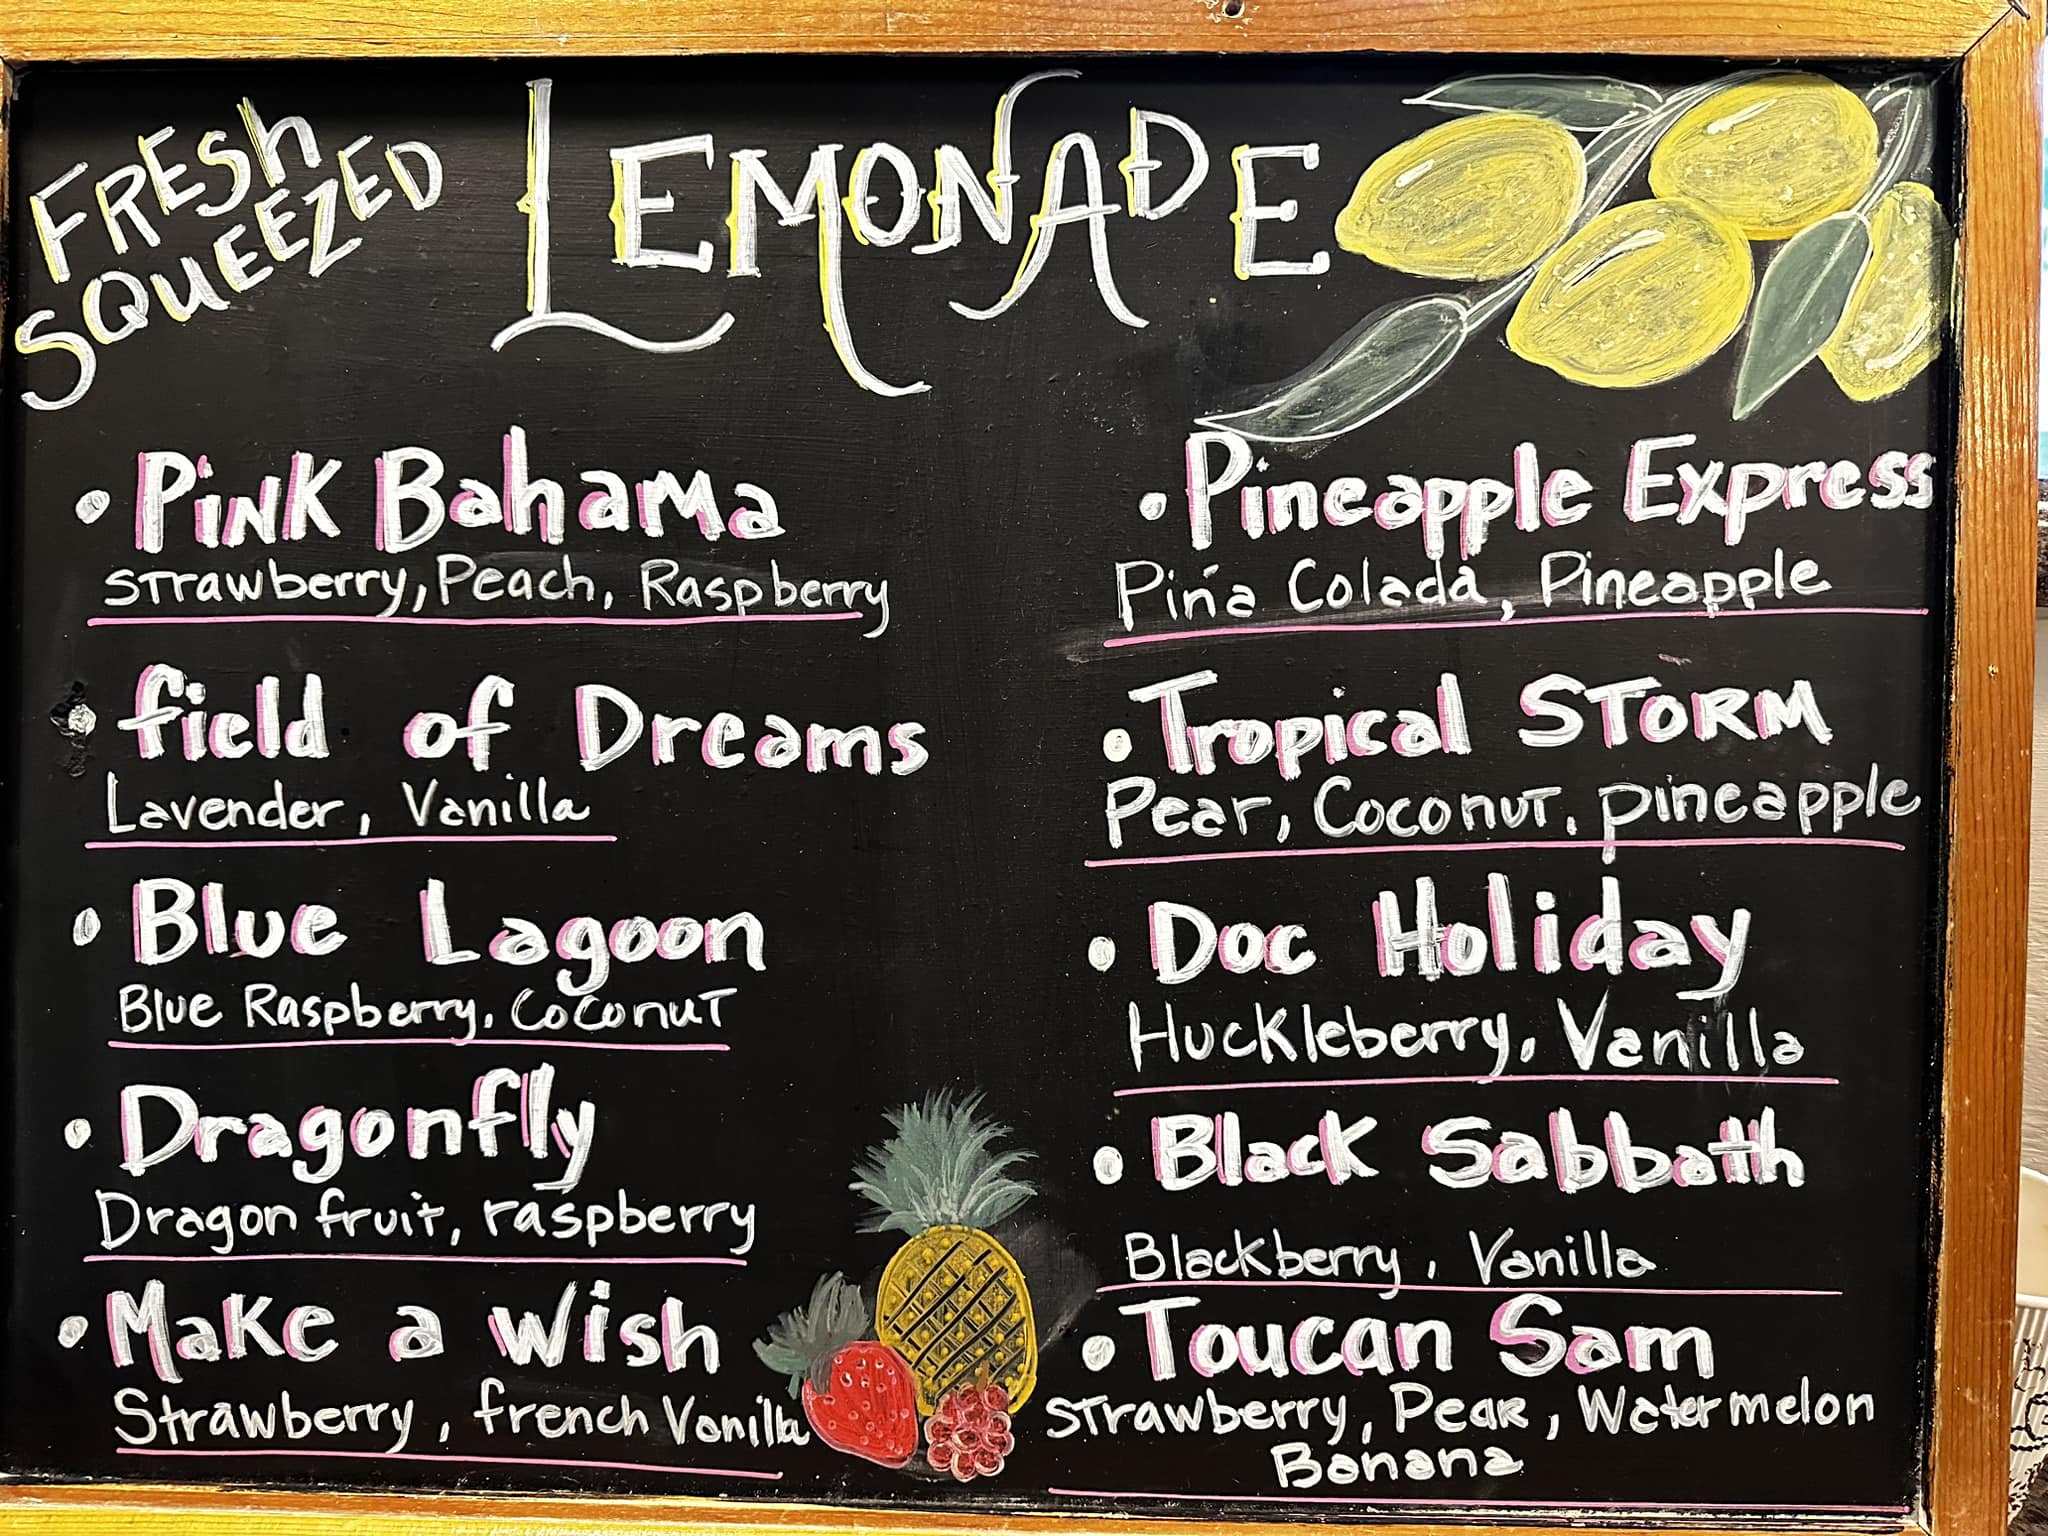 FRESh
SQUEEZED
LEMONADE
• PiNK Bahama
Strawberry, Peach, Raspberry
• field of Dreams
Lavender, Vanilla
• Blue Lagoon
Blue Raspberry, Coconut
• Dragonfly
Dragon fruit, raspberry
• Make a wish
Strawberry, french Vanilla
• Pineapple Express
Piña Colada, Pineapple
• Tropical STORM
Pear, Coconut, pineapple
• Doc Holiday
Huckleberry, Vanilla
• Black Sabbath
Blackberry, Vanilla
• Toucan Sam
Strawberry, Pear, Watermelon
Banana